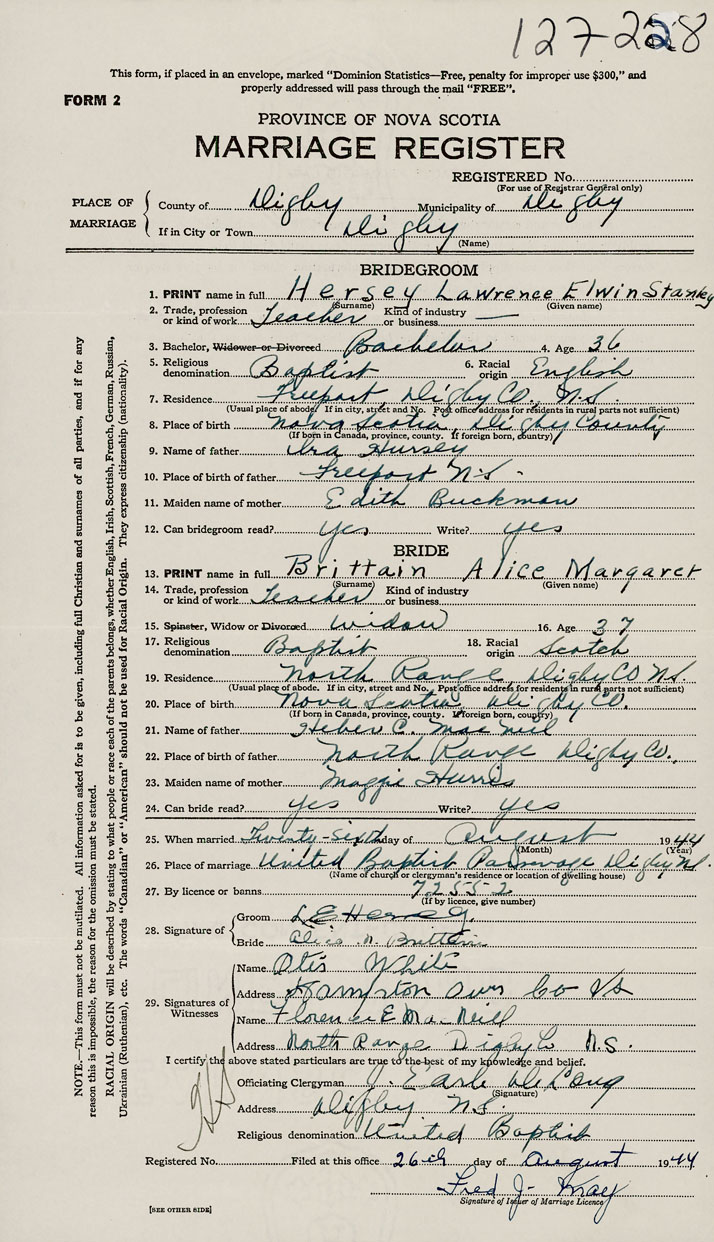 127-228
This form, if placed in an envelope, marked "Dominion Statistics—Free, penalty for improper use $300," and
properly addressed will pass through the mail "FREE".
FORM 2
PROVINCE OF NOVA SCOTIA
MARRIAGE REGISTER
REGISTERED No.
(For use of Registrar General only)
PLACE OF MARRIAGE
County of Digby Municipality of Digby
If in City or Town Digby
(Name)
BRIDEGROOM
1. PRINT name in full Hersey Lawrence Elwin Stanley
(Surname) (Given name)
2. Trade, profession or kind of work Teacher Kind of industry or business —
3. Bachelor, Widower or Divorced Bachelor 4. Age 36
5. Religious denomination Baptist 6. Racial origin English
7. Residence Freeport, Digby Co., N.S.
(Usual place of abode. If in city, street and No. Post office address for residents in rural parts not sufficient)
8. Place of birth Nova Scotia, Digby County
(If born in Canada, province, county. If foreign born, country)
9. Name of father Ira Hersey
10. Place of birth of father Freeport N.S.
11. Maiden name of mother Edith Buckman
12. Can bridegroom read? yes Write? yes
BRIDE
13. PRINT name in full Brittain Alice Margaret
(Surname) (Given name)
14. Trade, profession or kind of work Teacher Kind of industry or business
15. Spinster, Widow or Divorced Widow 16. Age 37
17. Religious denomination Baptist 18. Racial origin Scotch
19. Residence North Range Digby CO N.S.
(Usual place of abode. If in city, street and No. Post office address for residents in rural parts not sufficient)
20. Place of birth Nova Scotia, Digby CO.
(If born in Canada, province, county. If foreign born, country)
21. Name of father Heber C. MacNeil
22. Place of birth of father North Range Digby Co.
23. Maiden name of mother Maggie Harris
24. Can bride read? yes Write? yes
25. When married Twenty-sixth day of August 1944
(Month) (Year)
26. Place of marriage United Baptist Parsonage Digby N.S.
(Name of church or clergyman's residence or location of dwelling house)
27. By licence or banns 72552
(If by licence, give number)
28. Signature of
Groom L E Hersey
Bride Alice M. Brittain
29. Signatures of Witnesses
Name Otis White
Address Hampton Co NS
Name Florence E MacNeill
Address North Range Digby Co N.S.
I certify the above stated particulars are true to the best of my knowledge and belief.
Officiating Clergyman J. Earle DeLong
(Signature)
Address Digby N.S.
Religious denomination United Baptist
Registered No. Filed at this office 26th day of August 1944
Fred J. May
Signature of Issuer of Marriage Licence
[SEE OTHER SIDE]
NOTE.—This form must not be mutilated. All information asked for is to be given, including full Christian and surnames of all parties, and if for any
reason this is impossible, the reason for the omission must be stated.
RACIAL ORIGIN will be described by stating to what people or race each of the parents belongs, whether English, Irish, Scottish, French, German, Russian,
Ukrainian (Ruthenian), etc. The words "Canadian" or "American" should not be used for Racial Origin. They express citizenship (nationality).